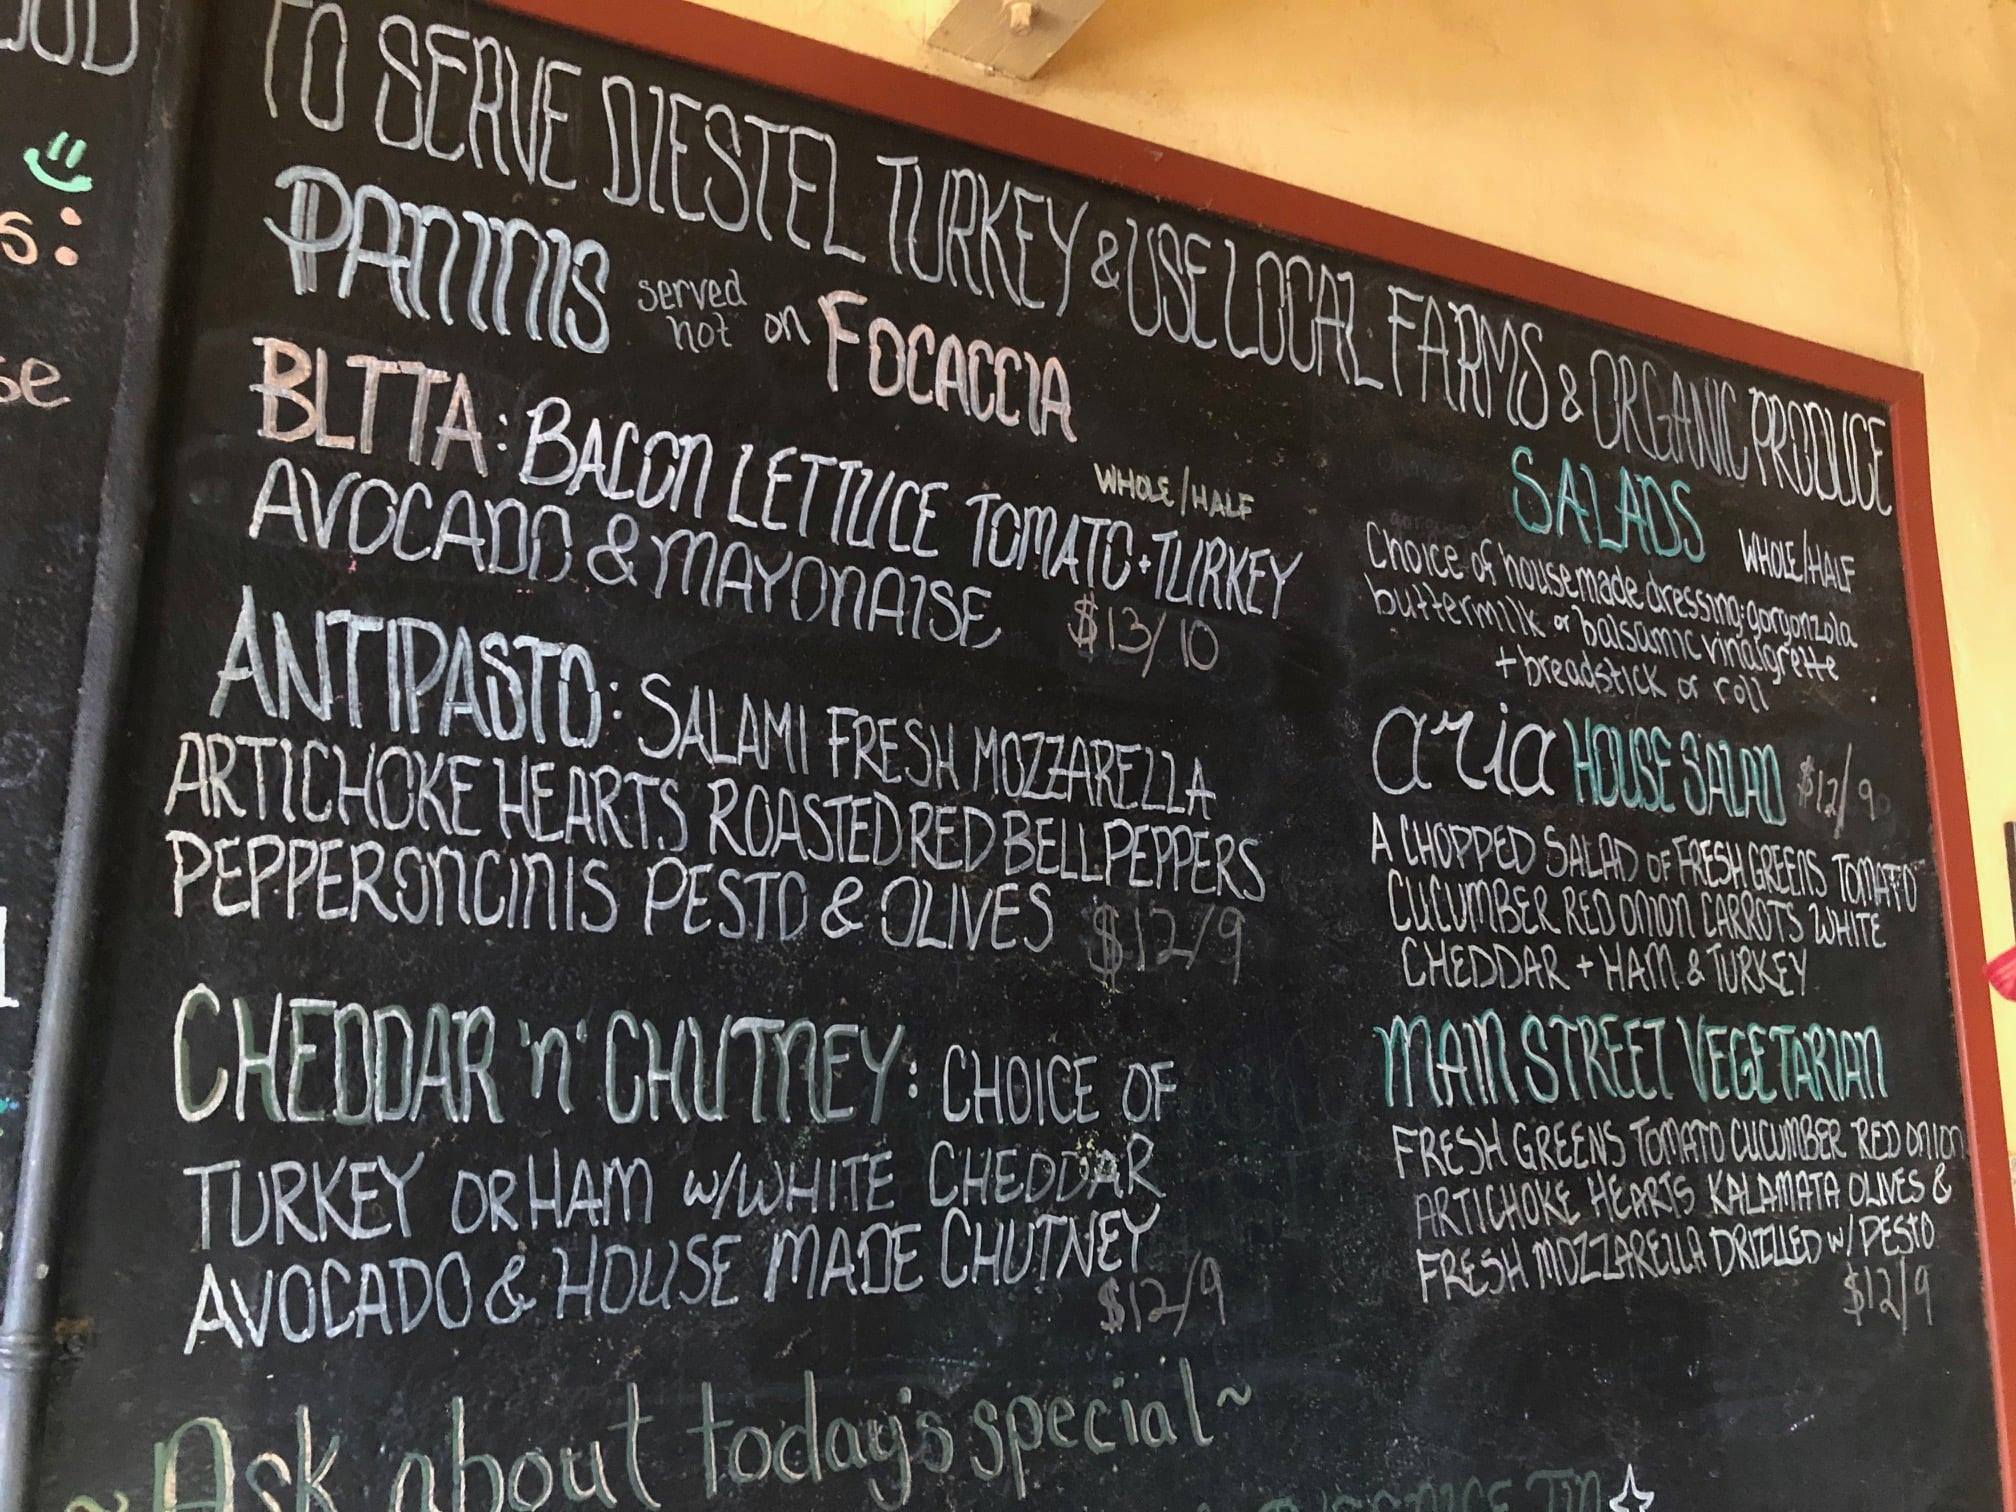 TO SERVE DIESTEL TURKEY & USE LOCAL FARMS & ORGANIC PRODUCE
PANINIS served hot on FOCACCIA
WHOLE/HALF
BLTTA: BACON LETTUCE TOMATO + TURKEY
AVOCADO & MAYONAISE $13/10
ANTIPASTO: SALAMI FRESH MOZZARELLA
ARTICHOKE HEARTS ROASTED RED BELL PEPPERS
PEPPERONCINIS PESTO & OLIVES $12/9
CHEDDAR 'n' CHUTNEY: CHOICE OF
TURKEY OR HAM W/WHITE CHEDDAR
AVOCADO & HOUSE MADE CHUTNEY
$12/9
SALADS
WHOLE/HALF
Choice of housemade dressing: gorgonzola
buttermilk or balsamic vinaigrette
+ breadstick or roll
aria HOUSE SALAD $12/9
A CHOPPED SALAD OF FRESH GREENS TOMATO
CUCUMBER RED ONION CARROTS WHITE
CHEDDAR + HAM & TURKEY
MAIN STREET VEGETARIAN
FRESH GREENS TOMATO CUCUMBER RED ONION
ARTICHOKE HEARTS KALAMATA OLIVES &
FRESH MOZZARELLA DRIZZLED W/ PESTO
$12/9
~Ask about today's special~